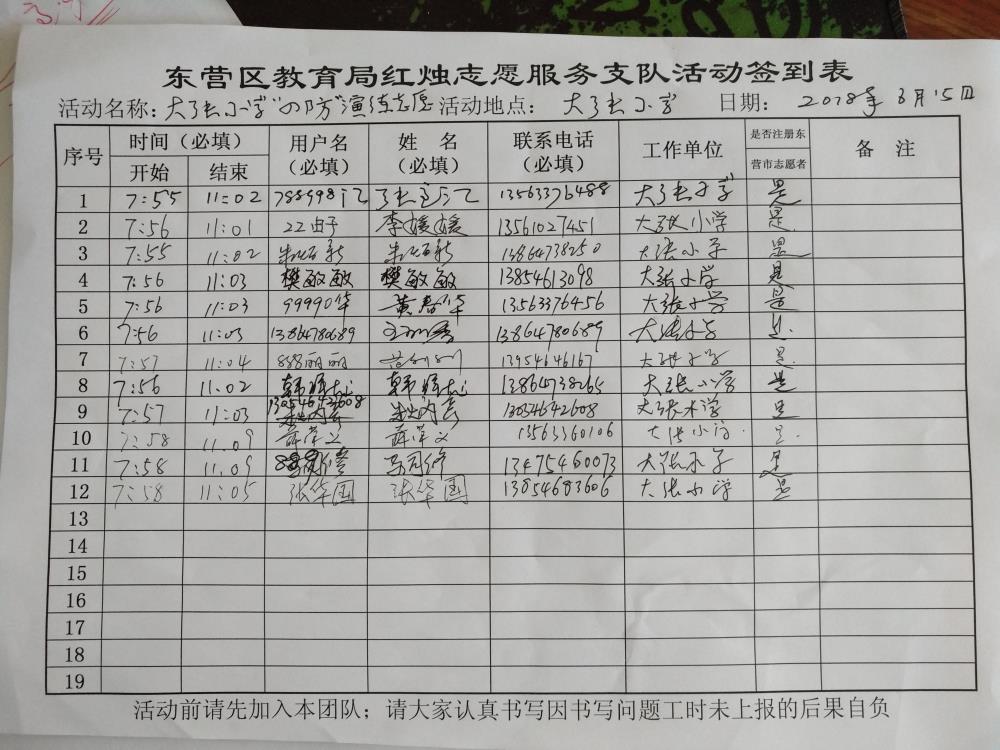 东营区教育局红烛志愿服务支队活动签到表
活动名称：大张小学"四防"演练志愿 活动地点： 大张小学 日期： 2018年 6月15日
序号 时间（必填） 开始 结束 用户名（必填） 姓 名（必填） 联系电话（必填） 工作单位 是否注册东营市志愿者 备 注
1 7:55 11:02 13563376488 大张小学 是
2 7:56 11:01 22由子 李媛媛 13561027451 大张小学 是
3 7:55 11:02 13864738250 大张小学 是
4 7:56 11:03 樊敏敏 樊敏敏 13854613098 大张小学 是
5 7:56 11:03 99990华 黄春华 13563376456 大张小学 是
6 7:56 11:03 13864780689 13864780689 大张小学 是
7 7:57 11:04 888丽丽 13954646167 大张小学 是
8 7:56 11.02 13864738265 大张小学 是
9 7:57 11:03 13054642608 13054642608 大张小学 是
10 7:58 11.09 薛荣义 薛荣义 13563360106 大张小学 是
11 7:58 11.09 13475460073 大张小学 是
12 7:58 11:05 张华国 张华国 13854683606 大张小学 是
13
14
15
16
17
18
19
活动前请先加入本团队；请大家认真书写因书写问题工时未上报的后果自负